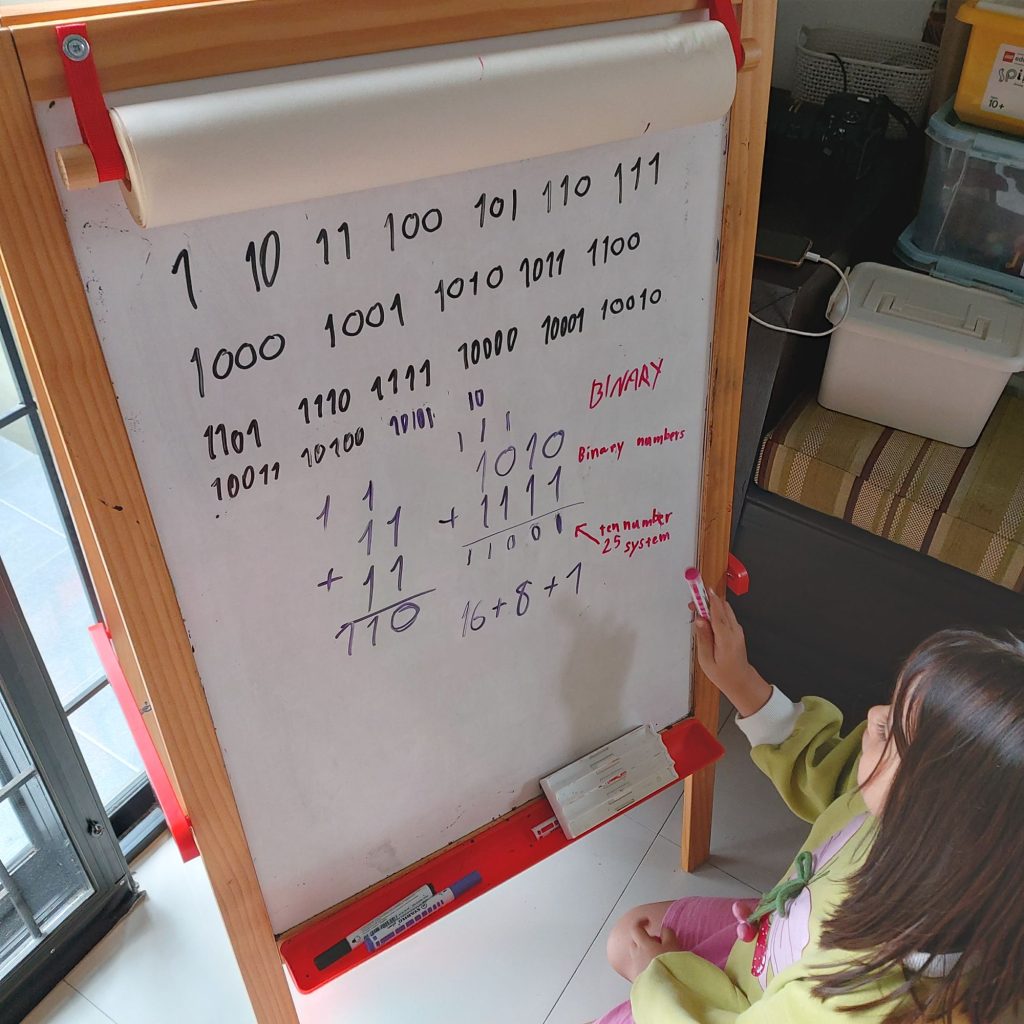 1 10 11 100 101 110 111
1000 1001 1010 1011 1100
1101 1110 1111 10000 10001 10010
10011 10100 10101
10
1 1 1
1010
+ 1111
11001
BINARY
Binary numbers
ten number
25 system
1 1
11
+ 11
110
16+8+1
10+